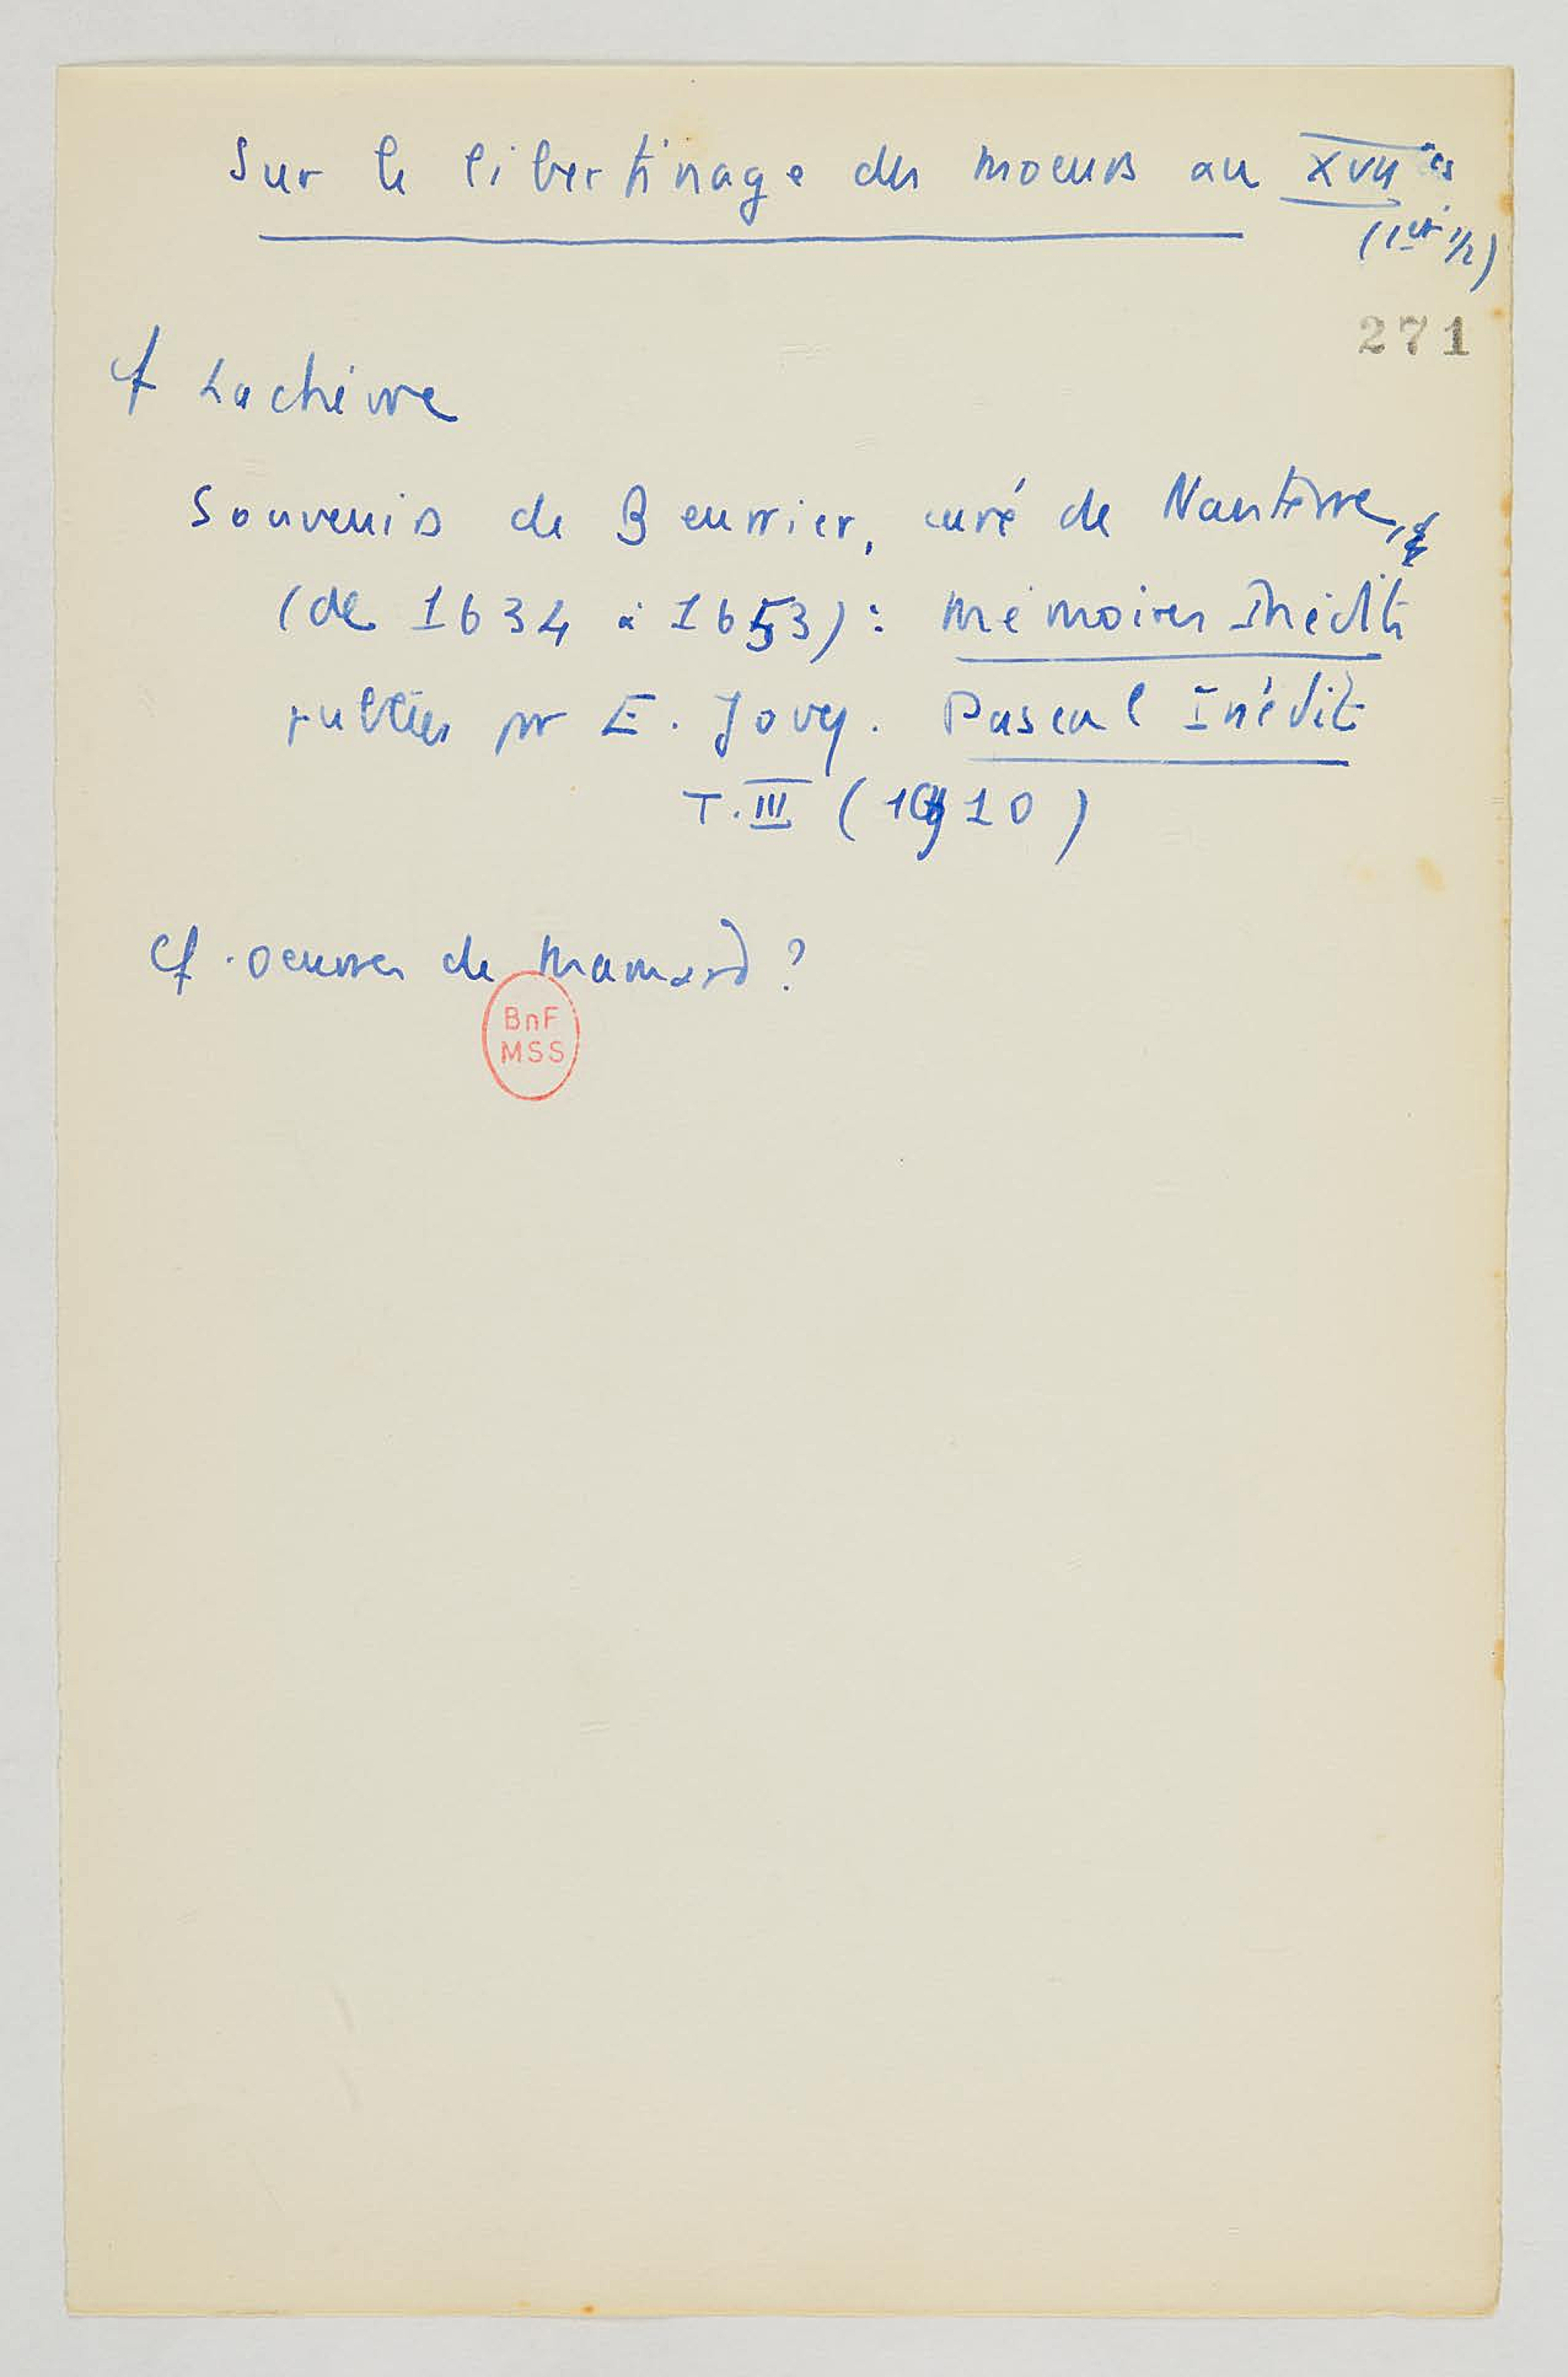 Sur le libertinage des moeurs au XVII es
(1er 1/2)
271
cf Lachèvre
Souvenirs de Beurrier, curé de Nanterre,
(de 1634 à 1653) : Mémoires Inédits
publiés pr E. Jovy. Pascal Inédit
T. III (1910)
cf. oeuvres de
BnF
MSS